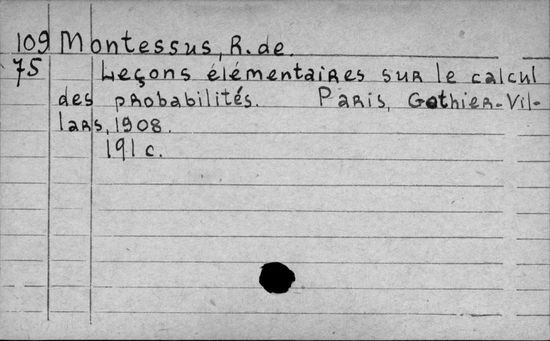 109 Montessus, R. de.
75 Leçons élémentaires sur le calcul
des probabilités. Paris, Gothier-Vil-
lars, 1908.
191 c.